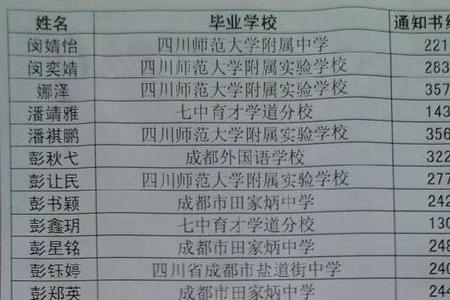 姓名 毕业学校 通知书
闵婧怡 四川师范大学附属中学 221
闵奕婧 四川师范大学附属实验学校 283
娜泽 四川师范大学附属实验学校 357
潘靖雅 七中育才学道分校 143
潘祺鹏 四川师范大学附属实验学校 356
彭秋弋 成都外国语学校 322
彭让民 四川师范大学附属实验学校 277
彭书颖 成都市田家炳中学 242
彭鑫玥 七中育才学道分校 130
彭星铭 成都市田家炳中学 248
彭钰婷 四川省成都市盐道街中学 240
彭郑英 成都市田家炳中学 244